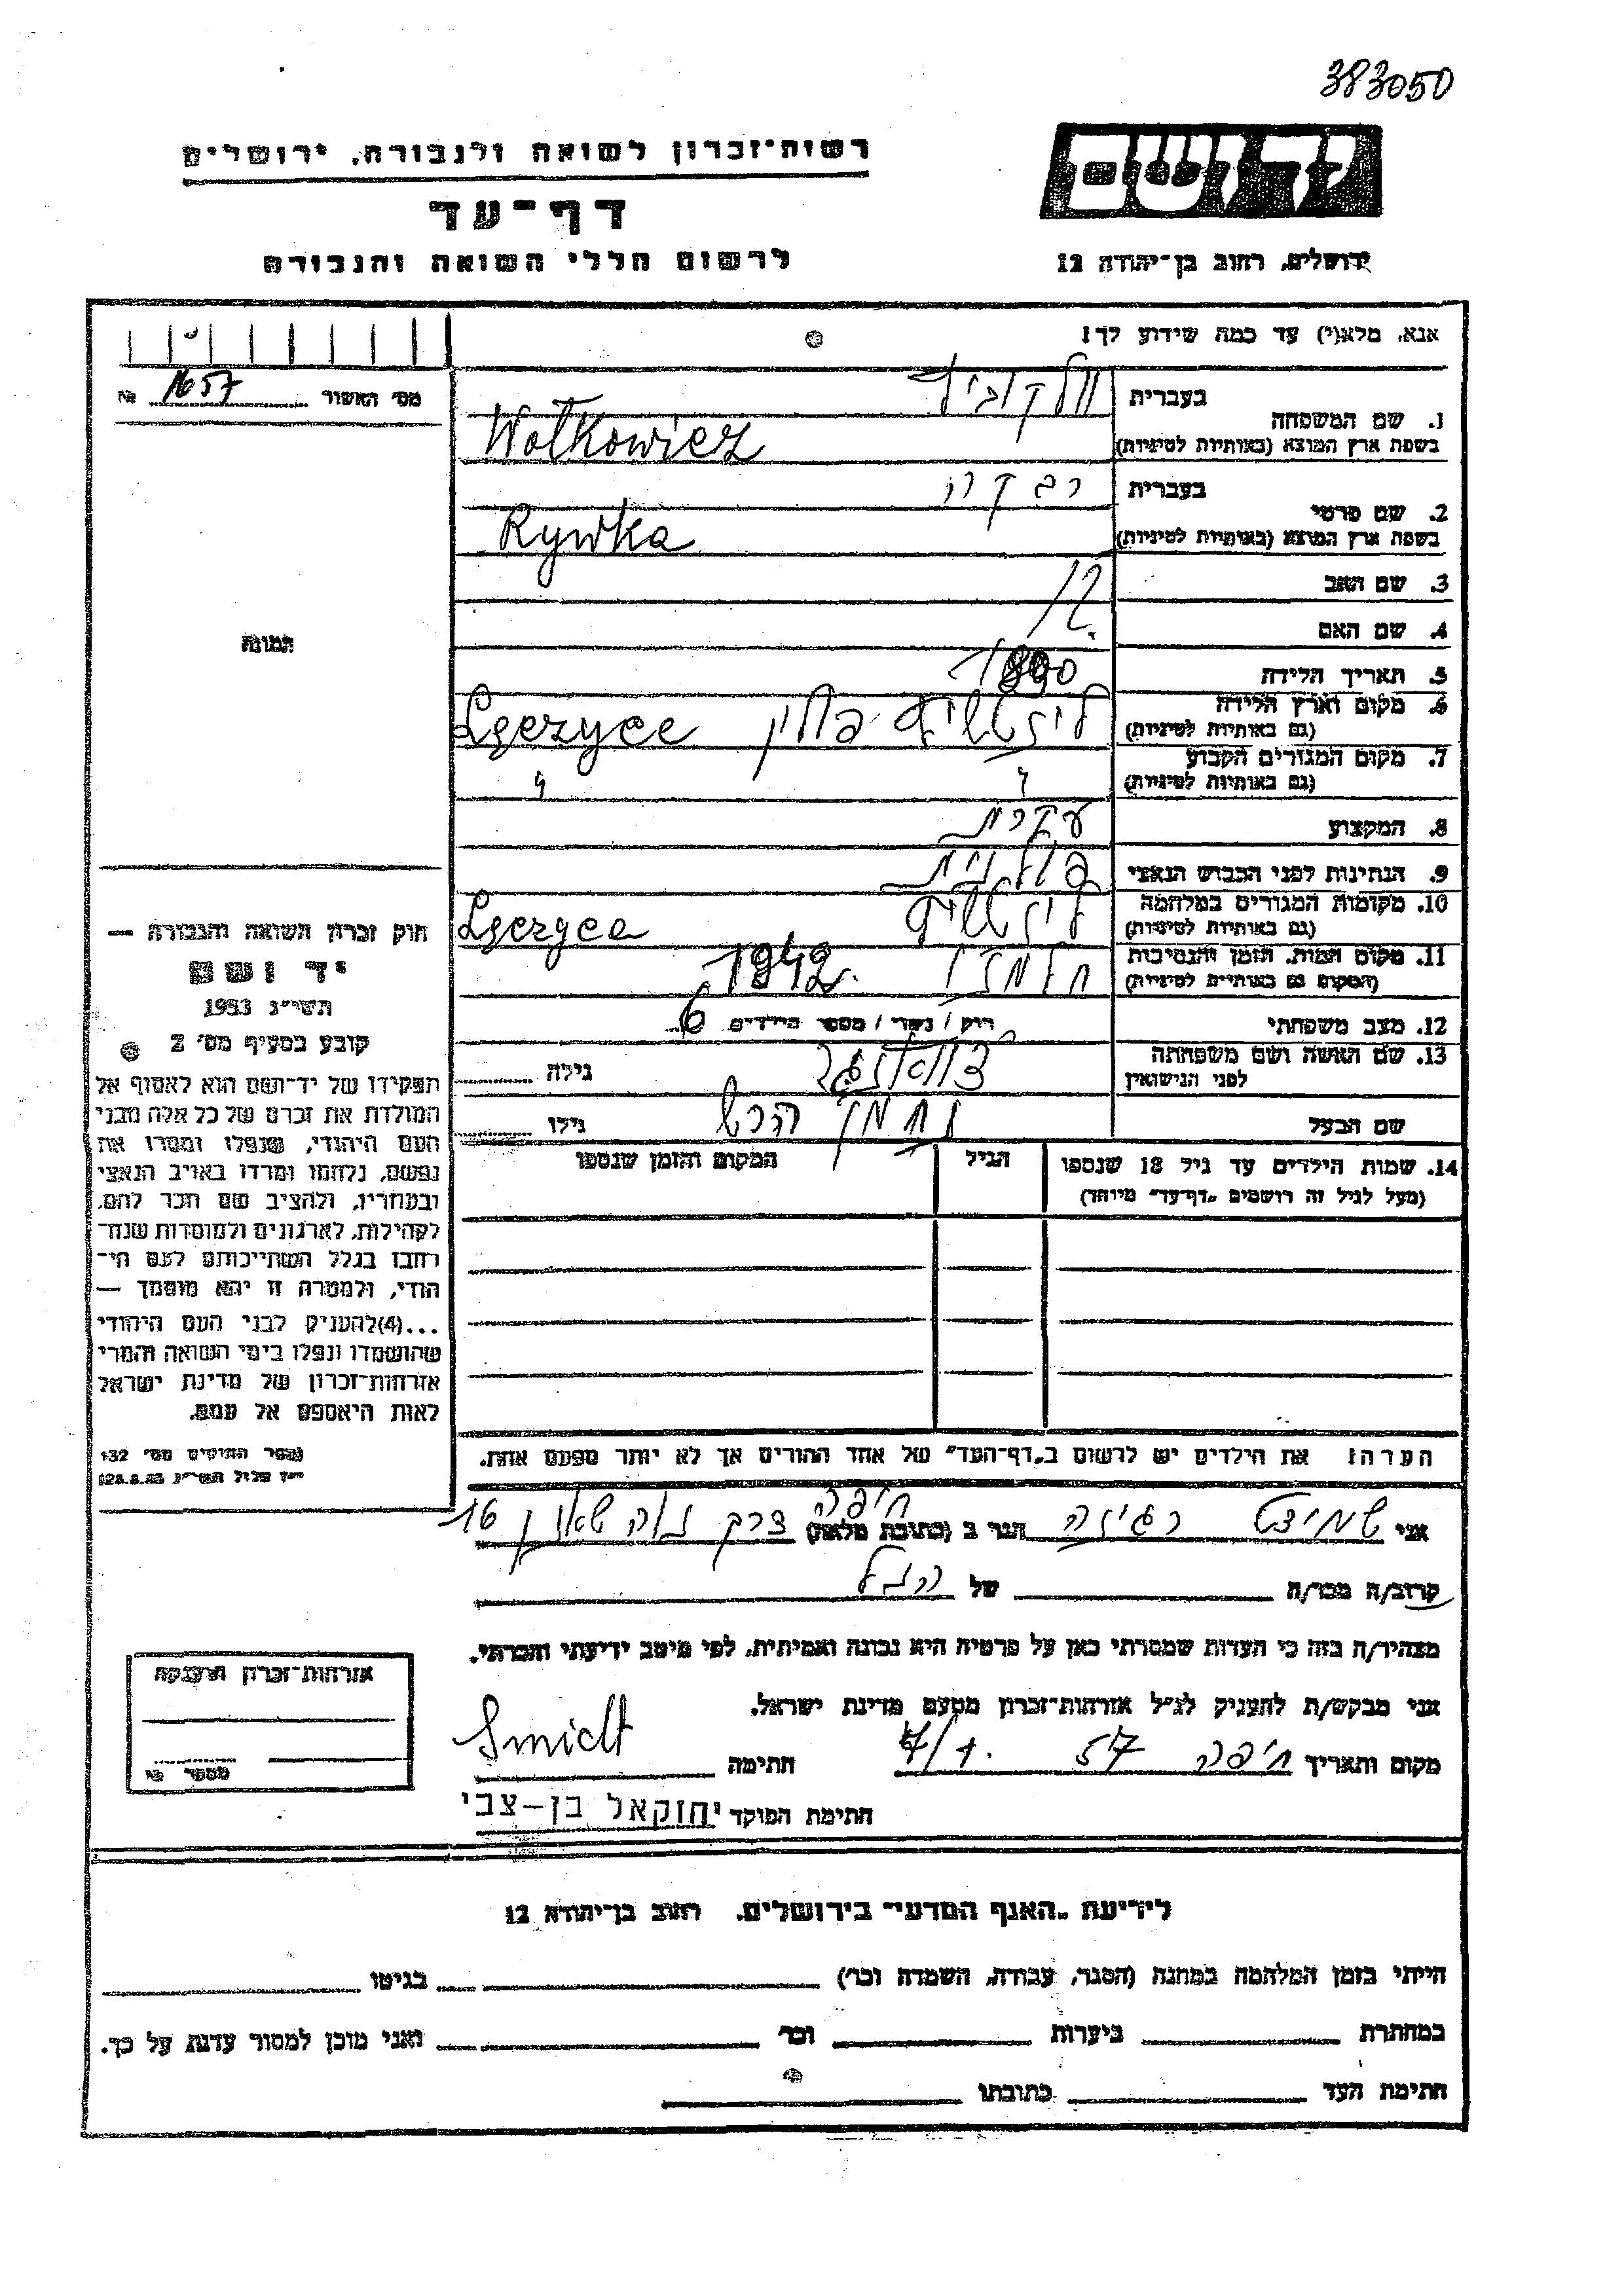 383050
רשות־זכרון לשואה ולגבורה, ירושלים
דף־עד
לרשום חללי השואה והגבורה
יד ושם
ירושלים, רחוב בן־יהודה 12
אנא, מלא(י) עד כמה שידוע לך!
מס׳ האשור 1657 №
1. שם המשפחה
בעברית וולקוביץ
בשפת ארץ המוצא (באותיות לטיניות) Wołkowicz
2. שם פרטי
בעברית רבקה
בשפת ארץ המוצא (באותיות לטיניות) Rywka
3. שם האב
4. שם האם
5. תאריך הלידה 1890
6. מקום וארץ הלידה
(גם באותיות לטיניות) פולין Lgczyce
7. מקום המגורים הקבוע
(גם באותיות לטיניות) " "
8. המקצוע עקרת
9. הנתינות לפני הכבוש הנאצי פולנית
10. מקומות המגורים במלחמה
(גם באותיות לטיניות) Lgczyca
11. מקום המות, הזמן והנסיבות
(המקום גם באותיות לטיניות) חלמנו 1942.
12. מצב משפחתי רווק / נשוי / מספר הילדים 6
13. שם האשה ושם משפחתה
לפני הנישואין גילה
שם הבעל נחמן הרש גילו
14. שמות הילדים עד גיל 18 שנספו
(מעל לגיל זה רושמים „דף־עד" מיוחד)
הגיל
המקום והזמן שנספו
הערה: את הילדים יש לרשום ב„דף־העד" של אחד ההורים אך לא יותר מפעם אחת.
תמונה
חוק זכרון השואה והגבורה —
יד ושם
תשי״ג 1953
קובע בסעיף מס׳ 2
תפקידו של יד־ושם הוא לאסוף אל
המולדת את זכרם של כל אלה מבני
העם היהודי, שנפלו ומסרו את
נפשם, נלחמו ומרדו באויב הנאצי
ובעוזריו, ולהציב שם וזכר להם,
לקהילות, לארגונים ולמוסדות שנח־
רבו בגלל השתייכותם לעם הי־
הודי, ולמטרה זו יהא מוסמך —
...(4) להעניק לבני העם היהודי
שהושמדו ונפלו בימי השואה והמרי
אזרחות־זכרון של מדינת ישראל
לאות היאספם אל עמם.
(ספר החוקים מס׳ 132
י״ז אלול תשי״ג 28.8.53)
אני שמידט רגינה הגר ב (כתובת מלאה) חיפה דרך נוה שאנן 16
קרוב/ה מכר/ה של הנ״ל
מצהיר/ה בזה כי העדות שמסרתי כאן על פרטיה היא נכונה ואמיתית, לפי מיטב ידיעתי והכרתי.
אני מבקש/ת להעניק לנ״ל אזרחות־זכרון מטעם מדינת ישראל.
מקום ותאריך חיפה 57 7/1. חתימה Smidt
חתימת הפוקד יחזקאל בן-צבי
אזרחות־זכרון הוענקה
מספר
לידיעת „האגף המדעי" בירושלים, רחוב בן־יהודה 12
הייתי בזמן המלחמה במחנה (הסגר, עבודה, השמדה וכו׳) בגיטו
במחתרת ביערות וכו׳ ואני מוכן למסור עדות על כך.
חתימת העד כתובתו